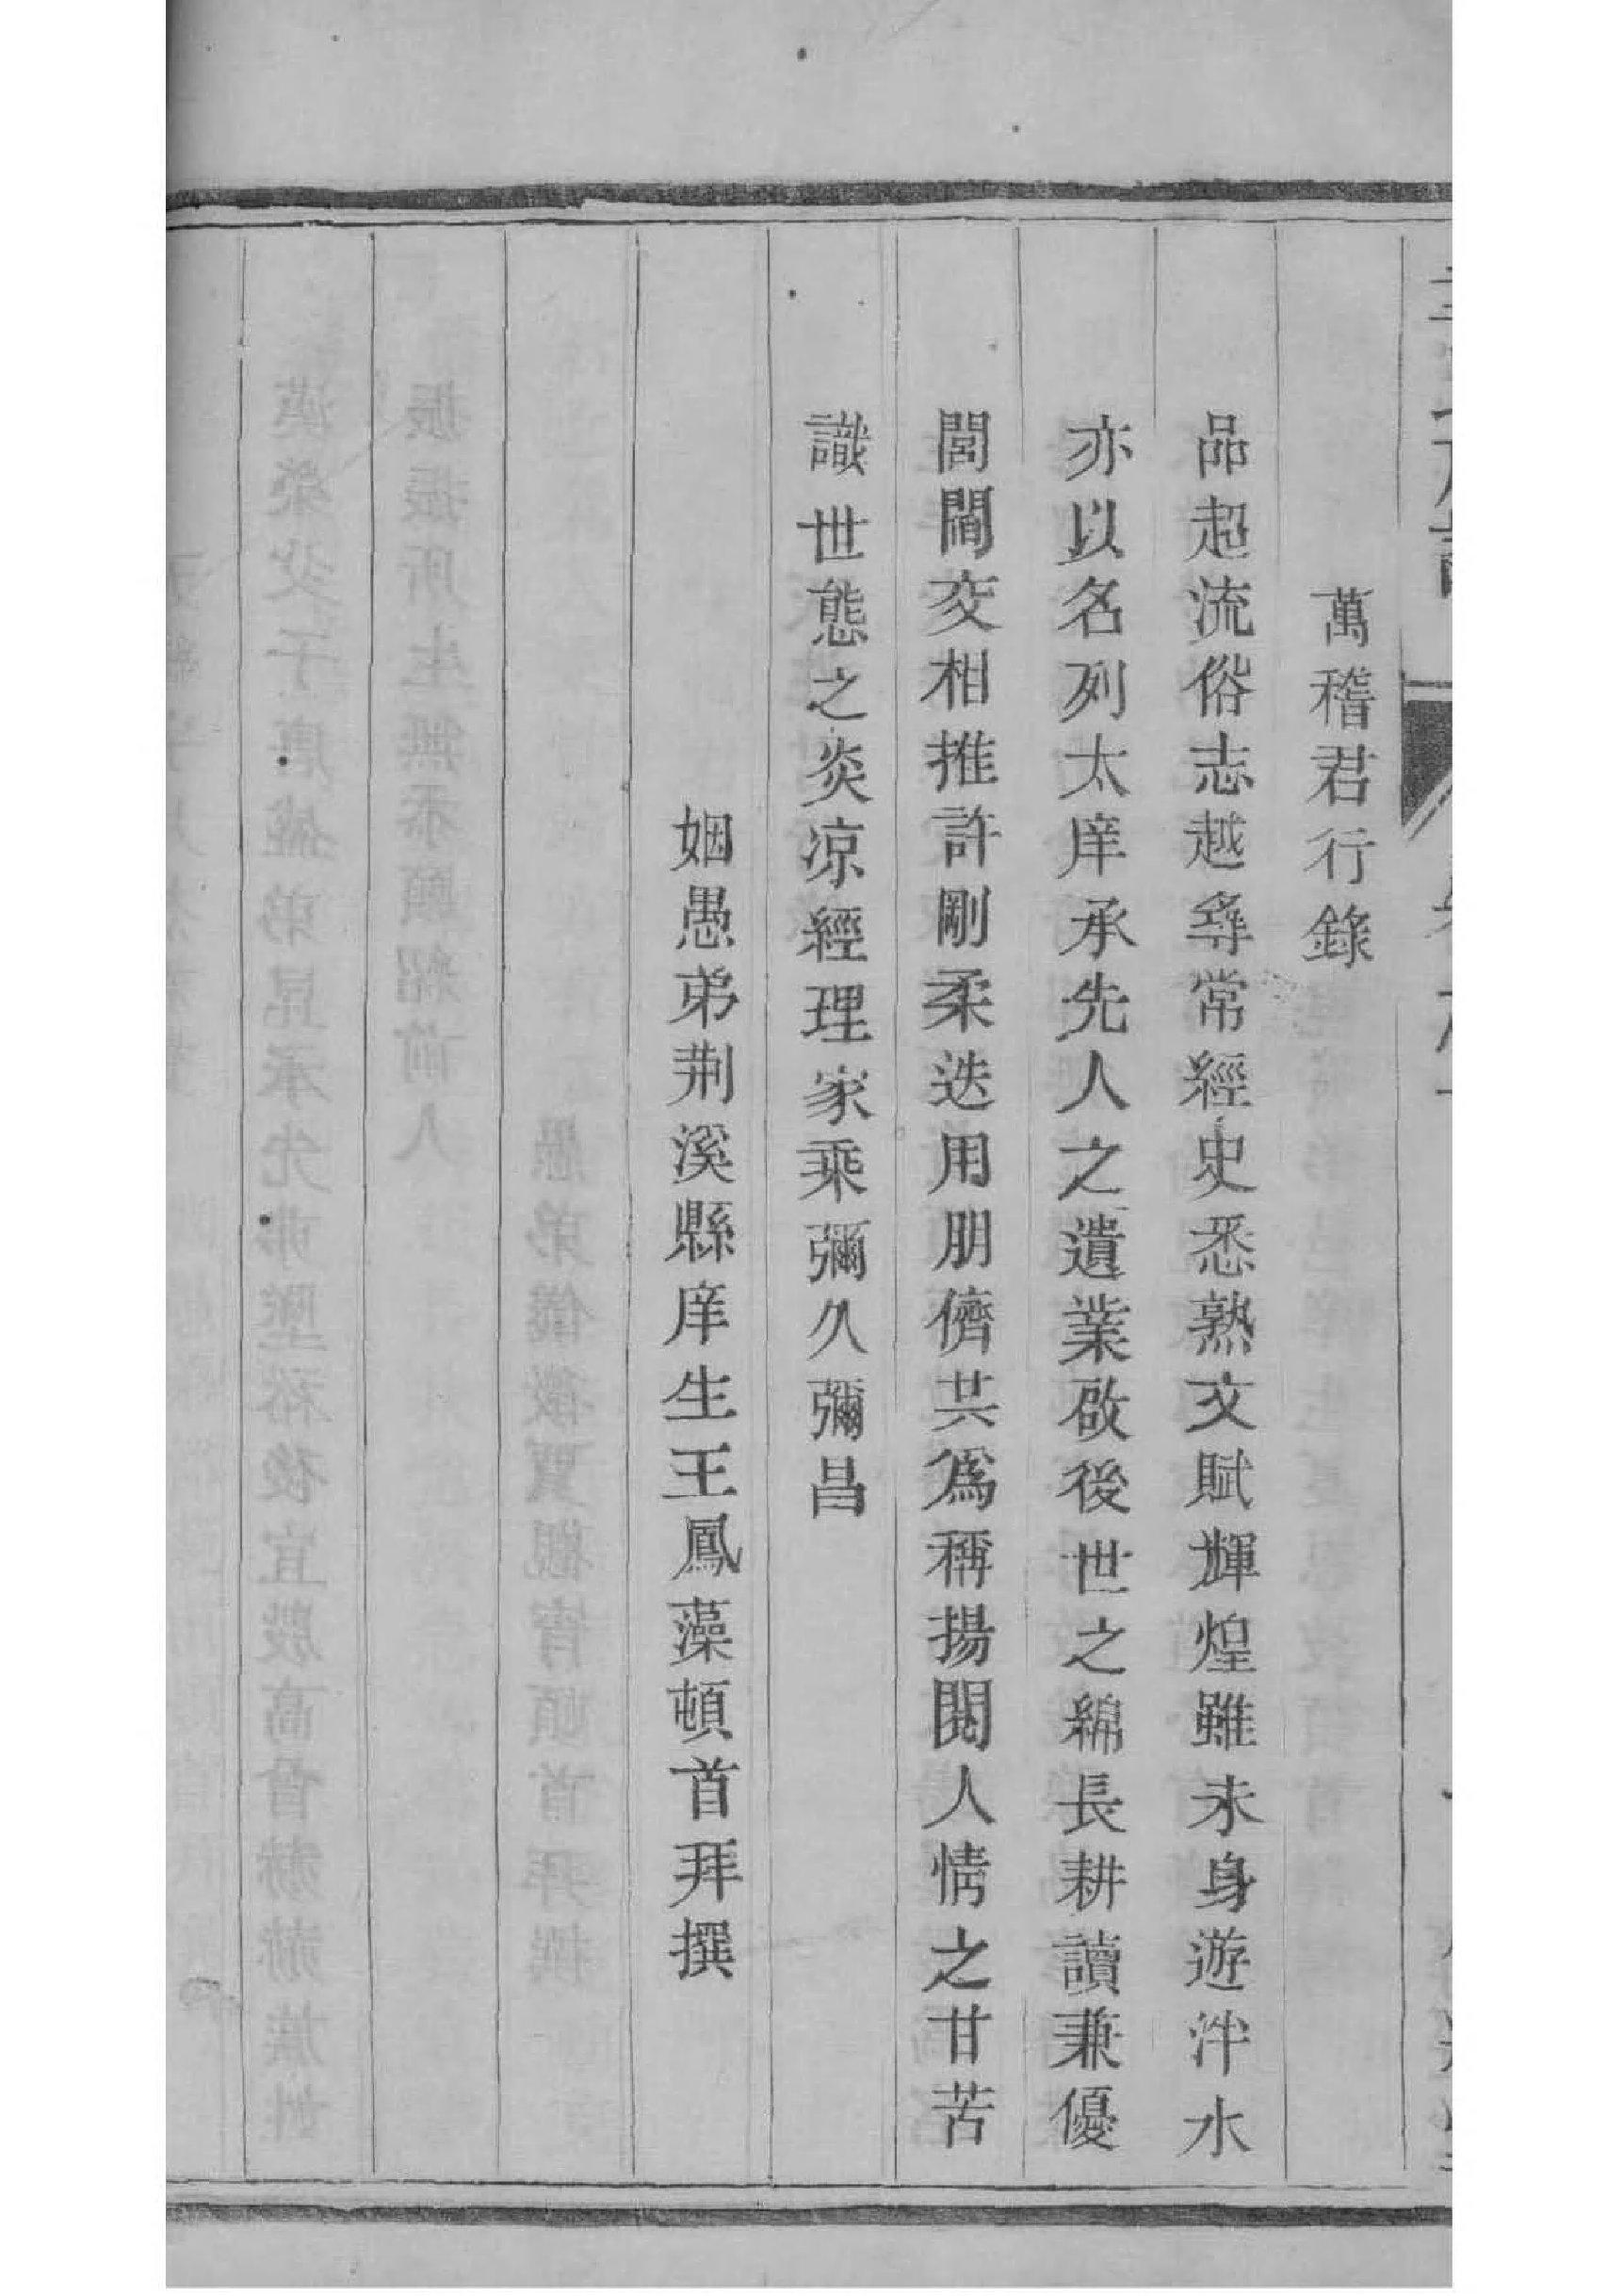 萬稽君行錄
品超流俗志越尋常經史悉熟文賦輝煌雖未身遊泮水
亦以名列太庠承先人之遺業啟後世之綿長耕讀兼優
閭閻交相推許剛柔迭用朋儕共爲稱揚閱人情之甘苦
識世態之炎凉經理家乘彌久彌昌
姻愚弟荆溪縣庠生王鳳藻頓首拜撰